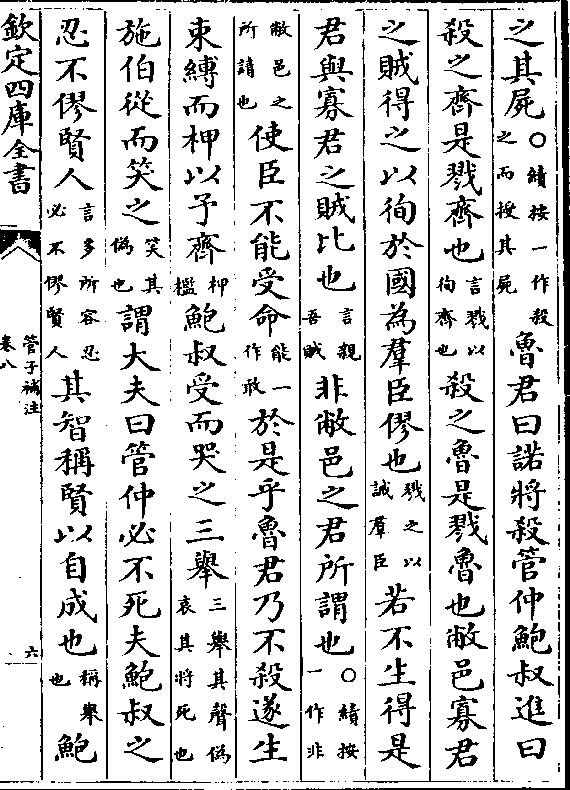 之其屍○續按一作殺之而授其屍魯君曰諾將殺管仲鮑叔進曰
殺之齊是戮齊也言戮以徇齊也殺之魯是戮魯也敝邑寡君
之賊得之以徇於國為羣臣僇也戮之以誡羣臣若不生得是
君與寡君之賊比也言親吾賊非敝邑之君所謂也○續按一作非
敝邑之所請也使臣不能受命能一作敢於是乎魯君乃不殺遂生
束縛而柙以予齊柙檻鮑叔受而哭之三舉三舉其聲偽哀其將死也
施伯從而笑之笑其偽也謂大夫曰管仲必不死夫鮑叔之
忍不僇賢人言多所容忍必不僇賢人其智稱賢以自成也稱舉也鮑
欽定四庫全書
管子補注
卷八
六